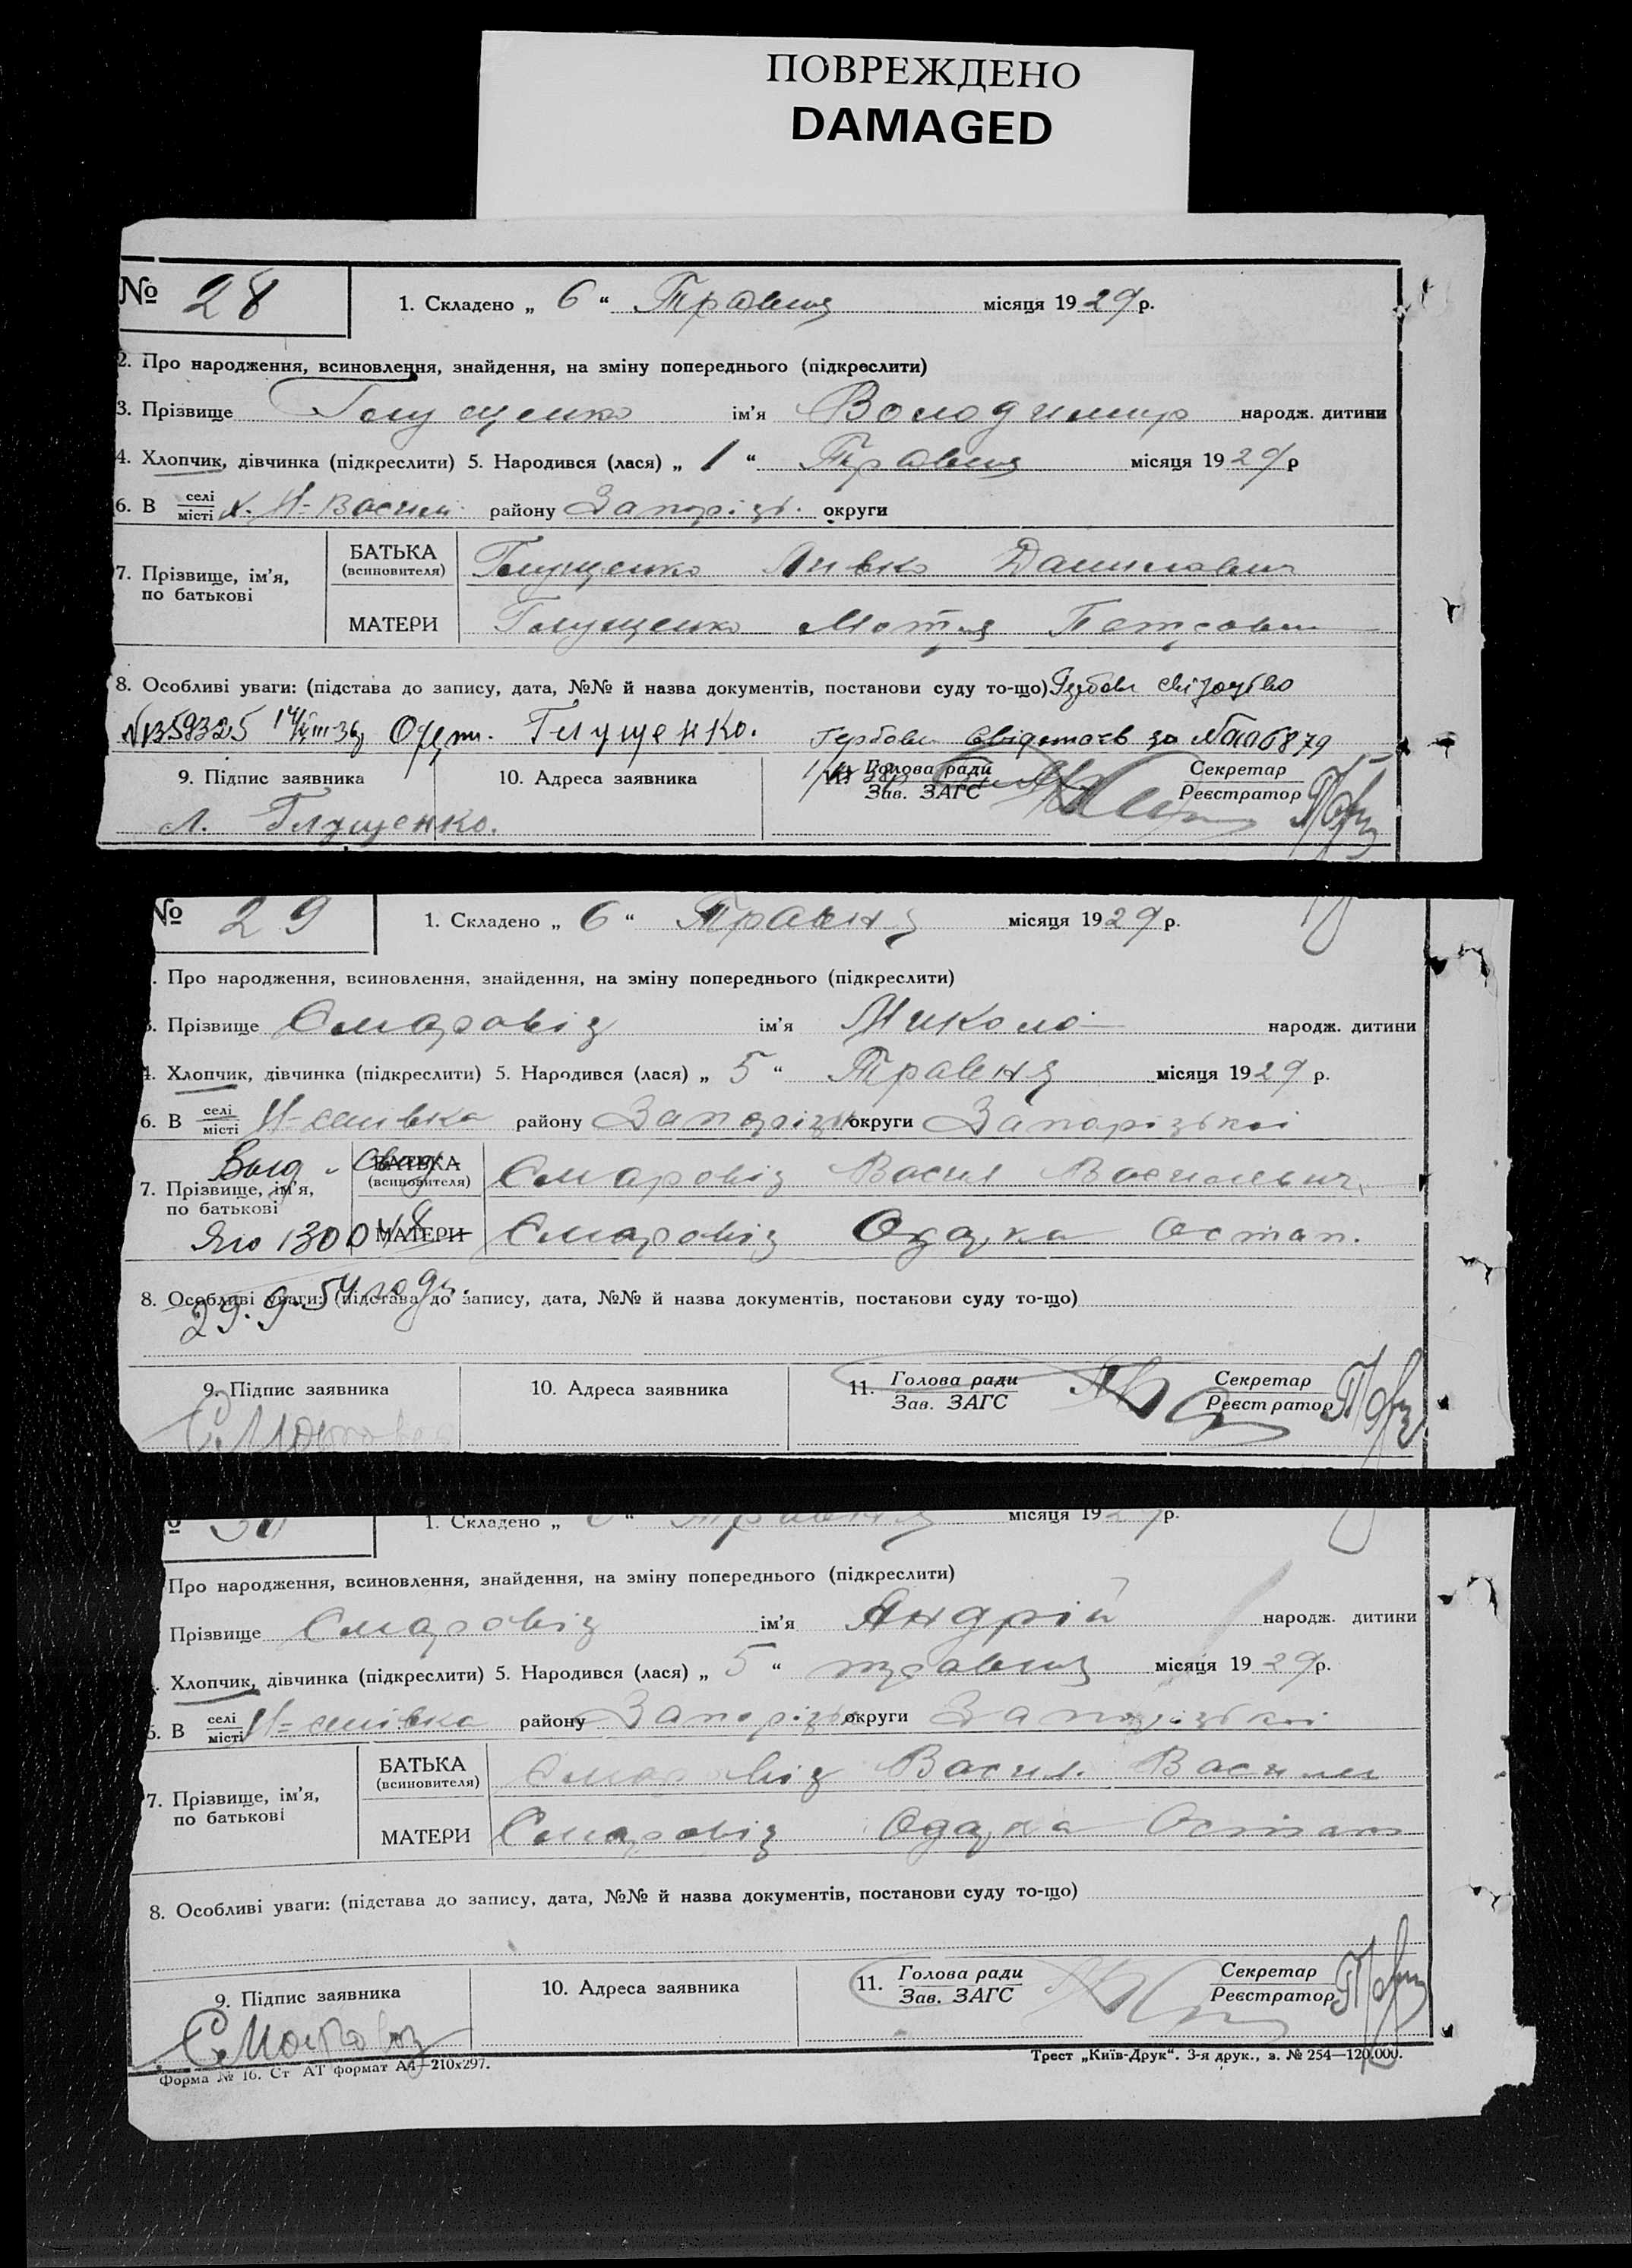 ПОВРЕЖДЕНО
DAMAGED
№ 28
1. Складено „ 6 “ Травня місяця 1929 р.
2. Про народження, всиновлення, знайдення, на зміну попереднього (підкреслити)
3. Прізвище Глущенко ім’я Володимир народж. дитини
4. Хлопчик, дівчинка (підкреслити) 5. Народився (лася) „ 1 “ Травня місяця 1929 р
6. В селі місті х. Н-Васил. району Запорізь. округи
7. Прізвище, ім’я, по батькові
БАТЬКА (всиновителя) Глущенко Личко Данилович
МАТЕРИ Глущенко Мотря Петровн
8. Особливі уваги: (підстава до запису, дата, №№ й назва документів, постанови суду то-що)
№ 359325 Глущенко.
9. Підпис заявника 10. Адреса заявника 11. Голова ради Зав. ЗАГС Секретар Реєстратор
Л. Глущенко.
№ 29
1. Складено „ 6 “ Травня місяця 1929 р.
. Про народження, всиновлення, знайдення, на зміну попереднього (підкреслити)
3. Прізвище Смаровіз ім’я Микола народж. дитини
4. Хлопчик, дівчинка (підкреслити) 5. Народився (лася) „ 5 “ Травня місяця 1929 р.
6. В селі місті району Запорізьк округи Запорізької
Выд. свид.
7. Прізвище, ім’я, по батькові
БАТЬКА (всиновителя) Смаровіз Васил Васильевич
МАТЕРИ Смаровіз Одарка Остап.
ЯЮ 130048
29.9.54 года.
8. Особливі уваги: (підстава до запису, дата, №№ й назва документів, постанови суду то-що)
9. Підпис заявника 10. Адреса заявника 11. Голова ради Зав. ЗАГС Секретар Реєстратор
30
1. Складено „ 6 “ Травня місяця 1929 р.
Про народження, всиновлення, знайдення, на зміну попереднього (підкреслити)
Прізвище Смаровіз ім’я Андрій народж. дитини
Хлопчик, дівчинка (підкреслити) 5. Народився (лася) „ 5 “ травня місяця 1929 р.
6. В селі місті району Запорізьк округи Запорізької
7. Прізвище, ім’я, по батькові
БАТЬКА (всиновителя) Смаровіз Васил. Васили
МАТЕРИ Смаровіз Одарка Остап
8. Особливі уваги: (підстава до запису, дата, №№ й назва документів, постанови суду то-що)
9. Підпис заявника 10. Адреса заявника 11. Голова ради Зав. ЗАГС Секретар Реєстратор
Форма № 16. Ст АТ формат А4—210x297. Трест „Київ-Друк“. 3-я друк., з. № 254—120.000.